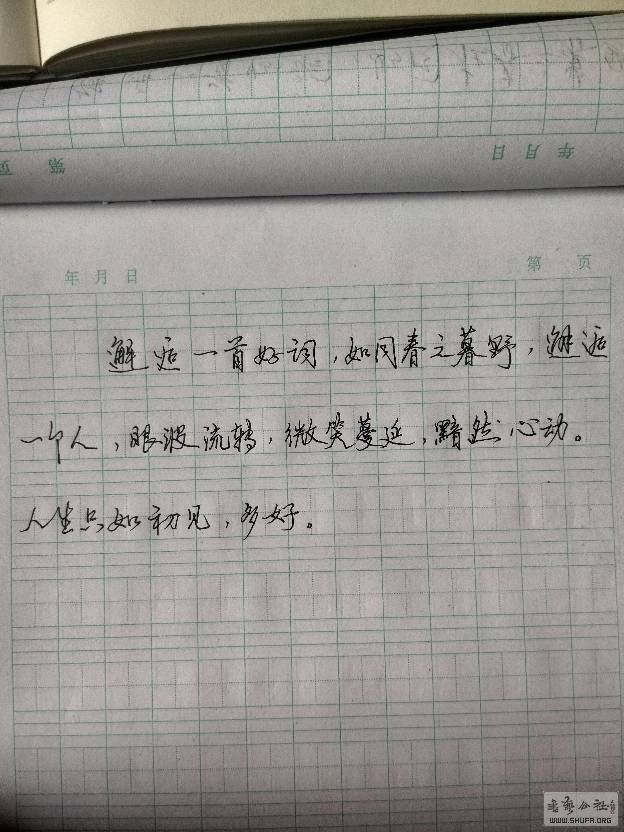 年 月 日
第 页
年 月 日
第 页
邂逅一首好词，如同春之暮野，邂逅
一个人，眼波流转，微笑蔓延，黯然心动。
人生只如初见，多好。
WWW.SHUFA.ORG